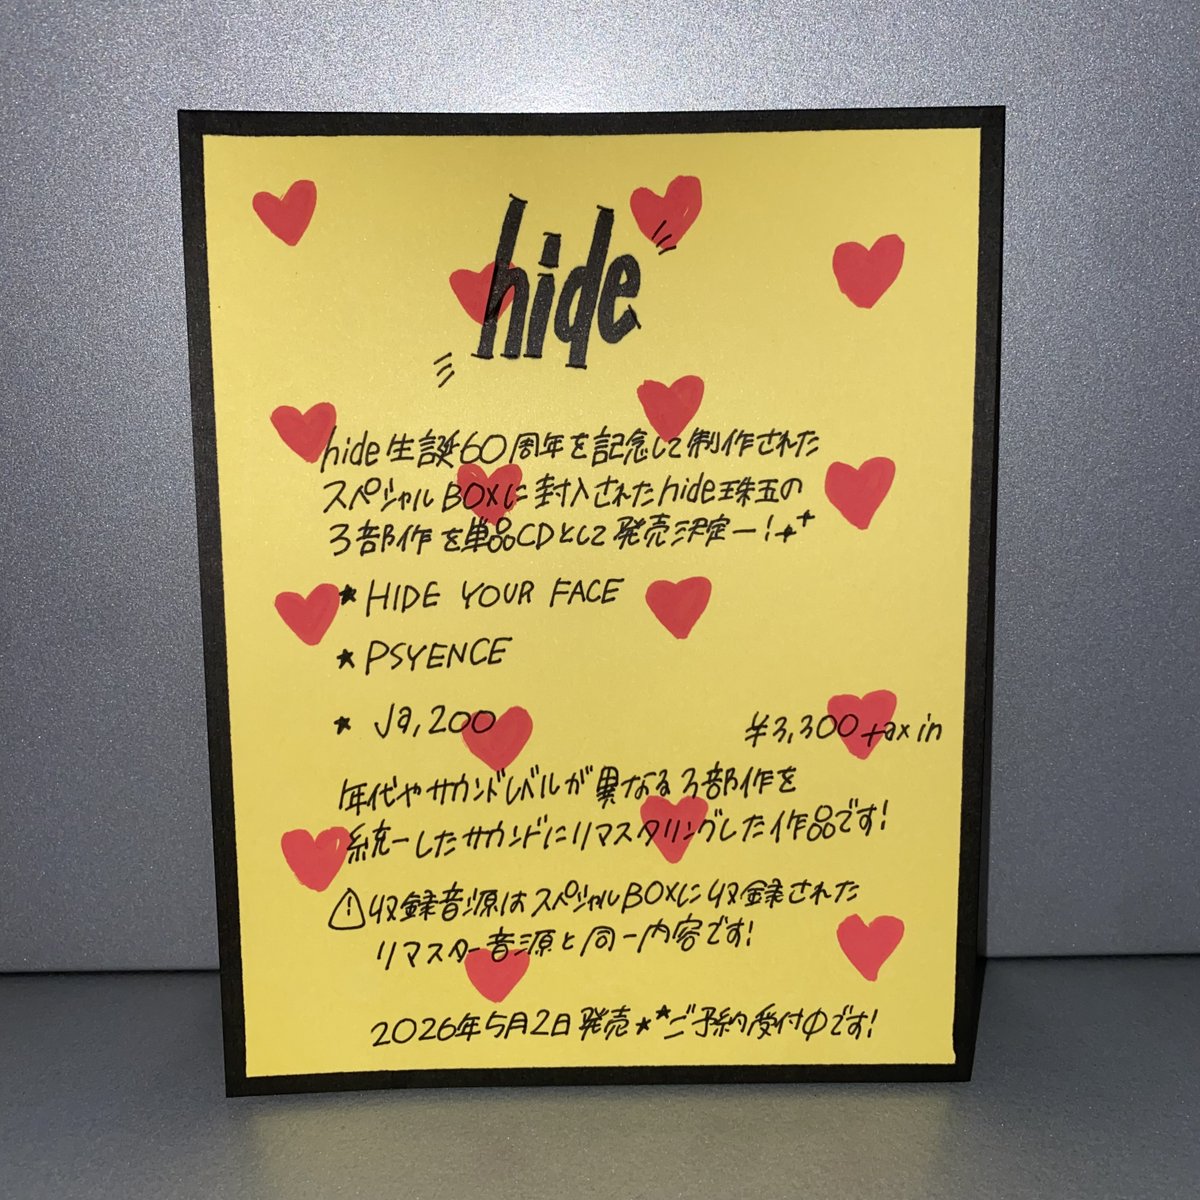 hide
hide生誕60周年を記念して制作された
スペシャルBOXに封入されたhide珠玉の
3部作を単品CDとして発売決定ー!
★HIDE YOUR FACE
★PSYENCE
★Ja,zoo
¥3,300 tax in
年代やサウンドレベルが異なる3部作を
統一したサウンドにリマスタリングした作品です!
⚠収録音源はスペシャルBOXに収録された
リマスター音源と同一内容です!
2026年5月2日発売★*ご予約受付中です!